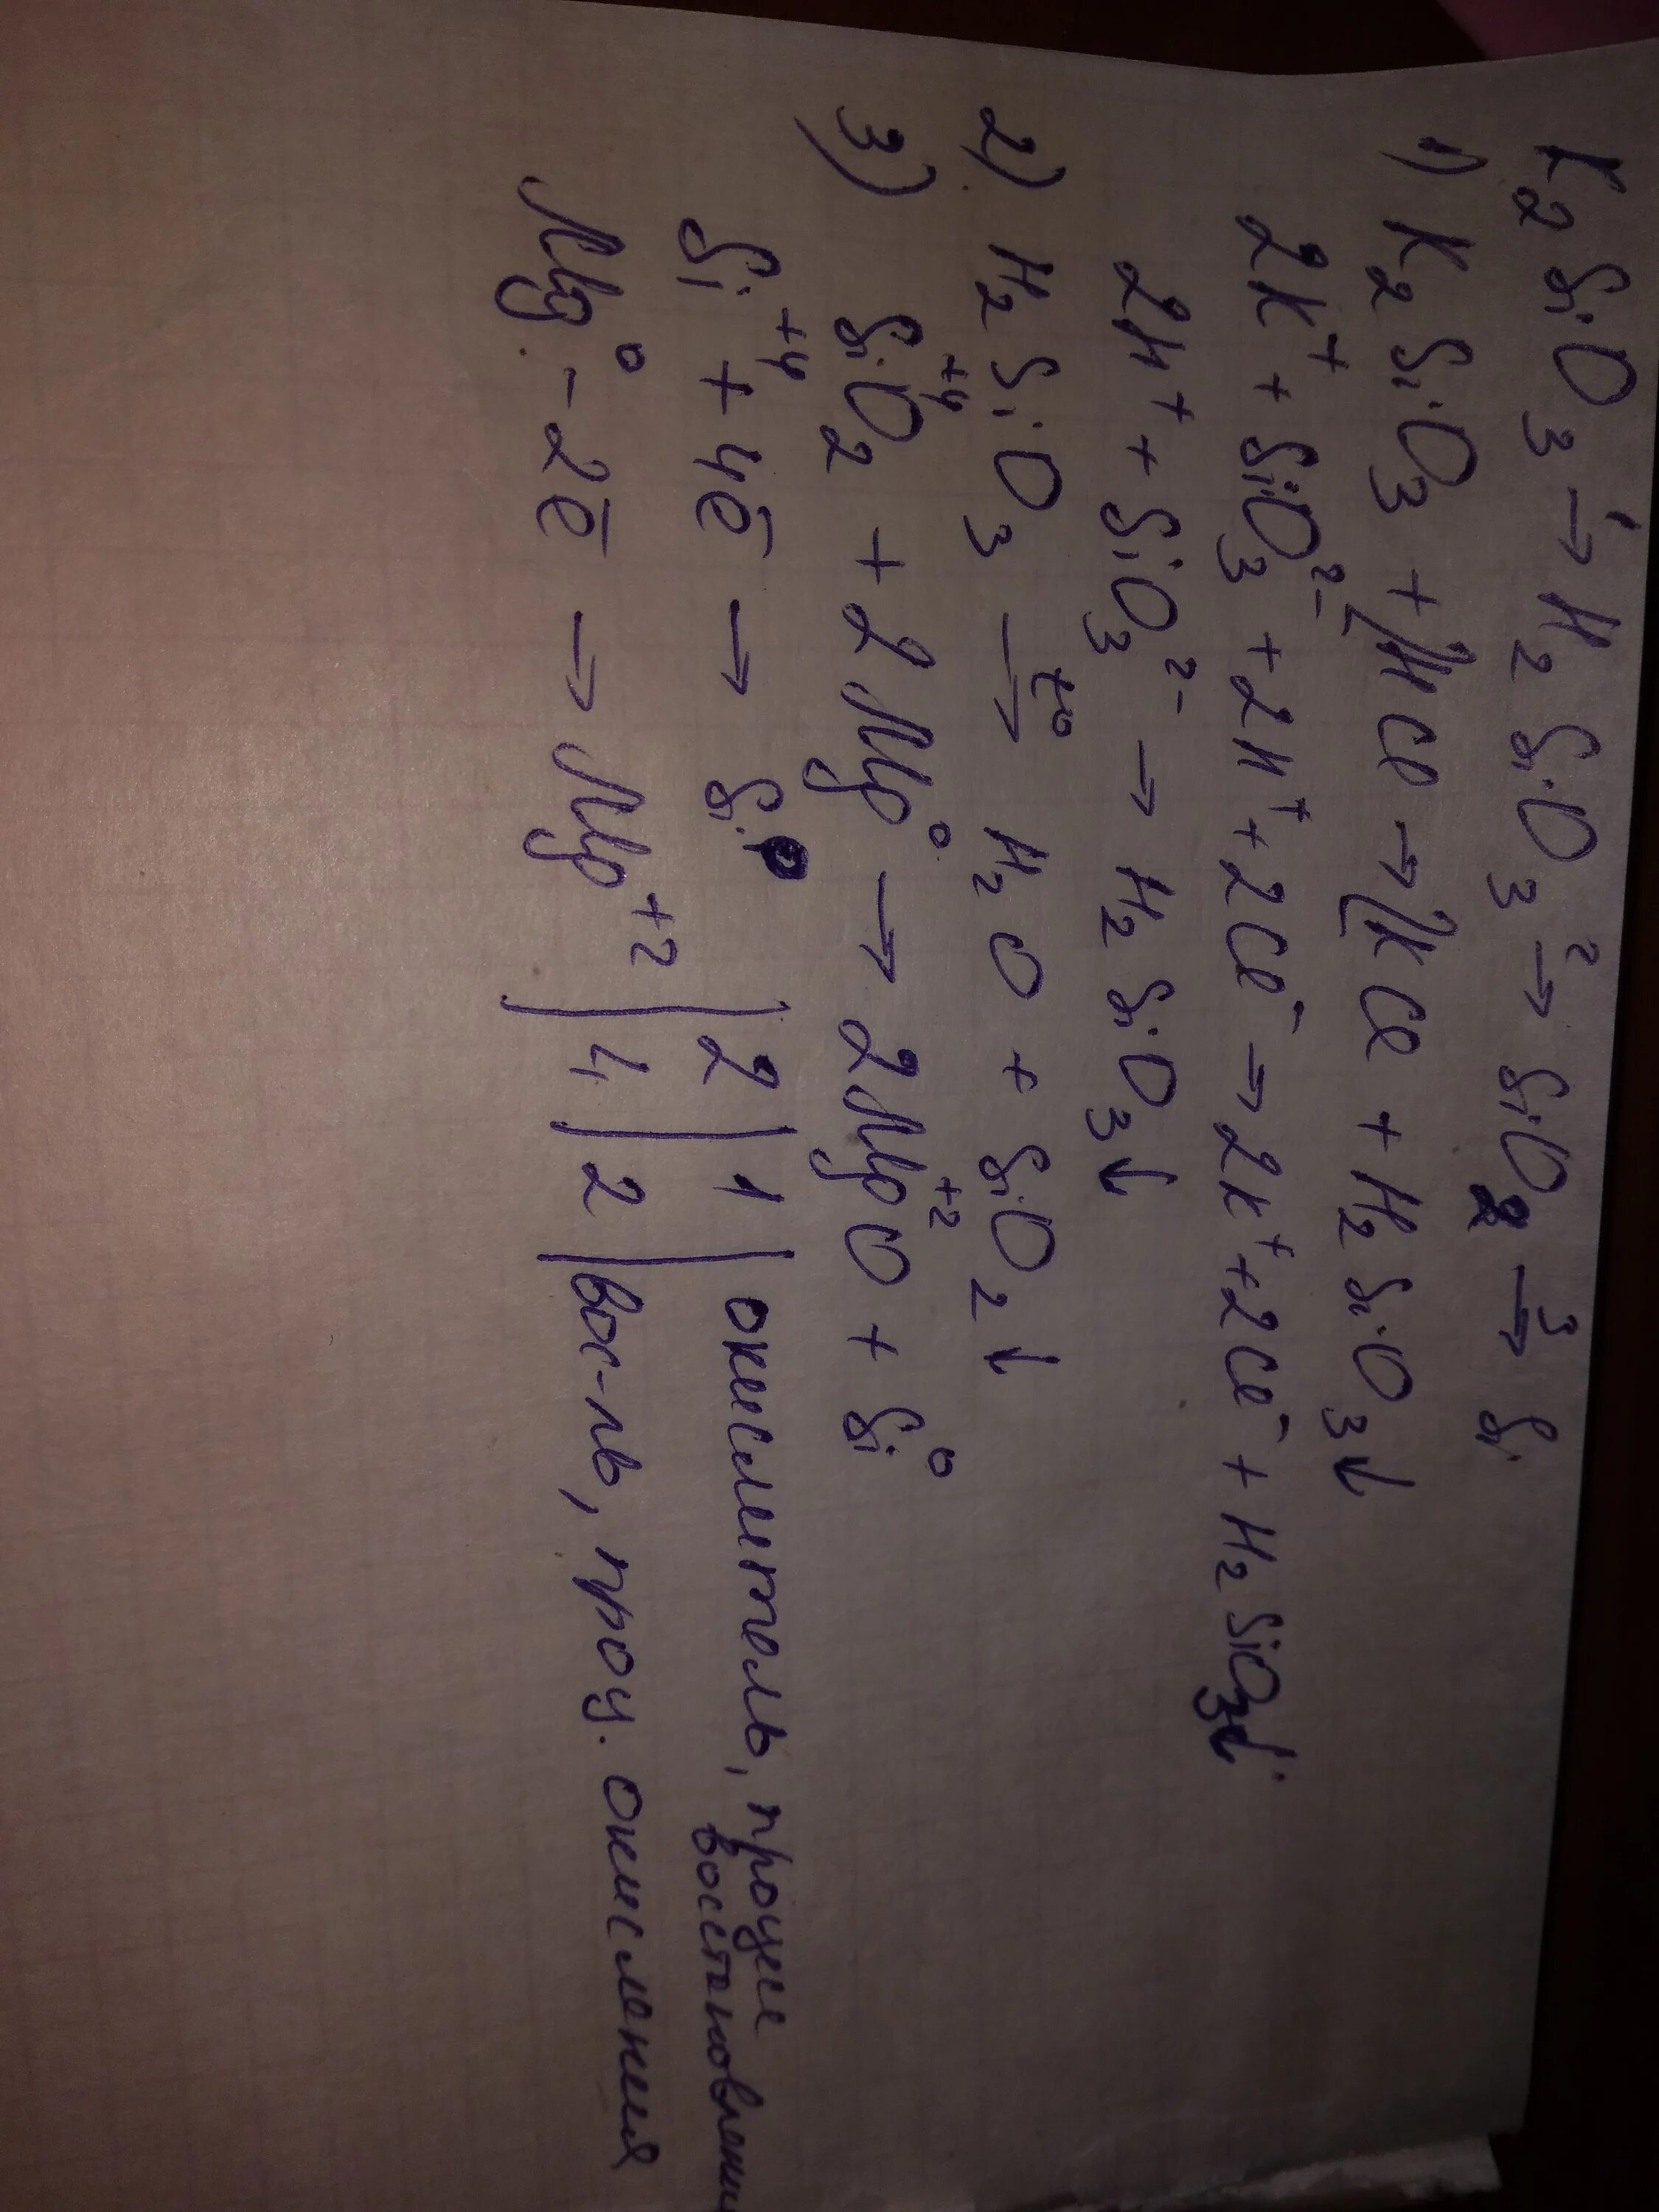 K₂SiO₃ →¹ H₂SiO₃ →² SiO₂ →³ Si
1) K₂SiO₃ + 2HCl → 2KCl + H₂SiO₃↓
2K⁺ + SiO₃²⁻ + 2H⁺ + 2Cl⁻ → 2K⁺ + 2Cl⁻ + H₂SiO₃↓
2H⁺ + SiO₃²⁻ → H₂SiO₃↓
2) H₂SiO₃ →ᵗ° H₂O + SiO₂↓
3) Si⁺⁴O₂ + 2Mg⁰ → 2Mg⁺²O + Si⁰
Si⁺⁴ + 4ē → Si⁰ | 2 | 1 | окислитель, процесс восстановления
Mg⁰ - 2ē → Mg⁺² | 4 | 2 | вос-ль, проц. окисления